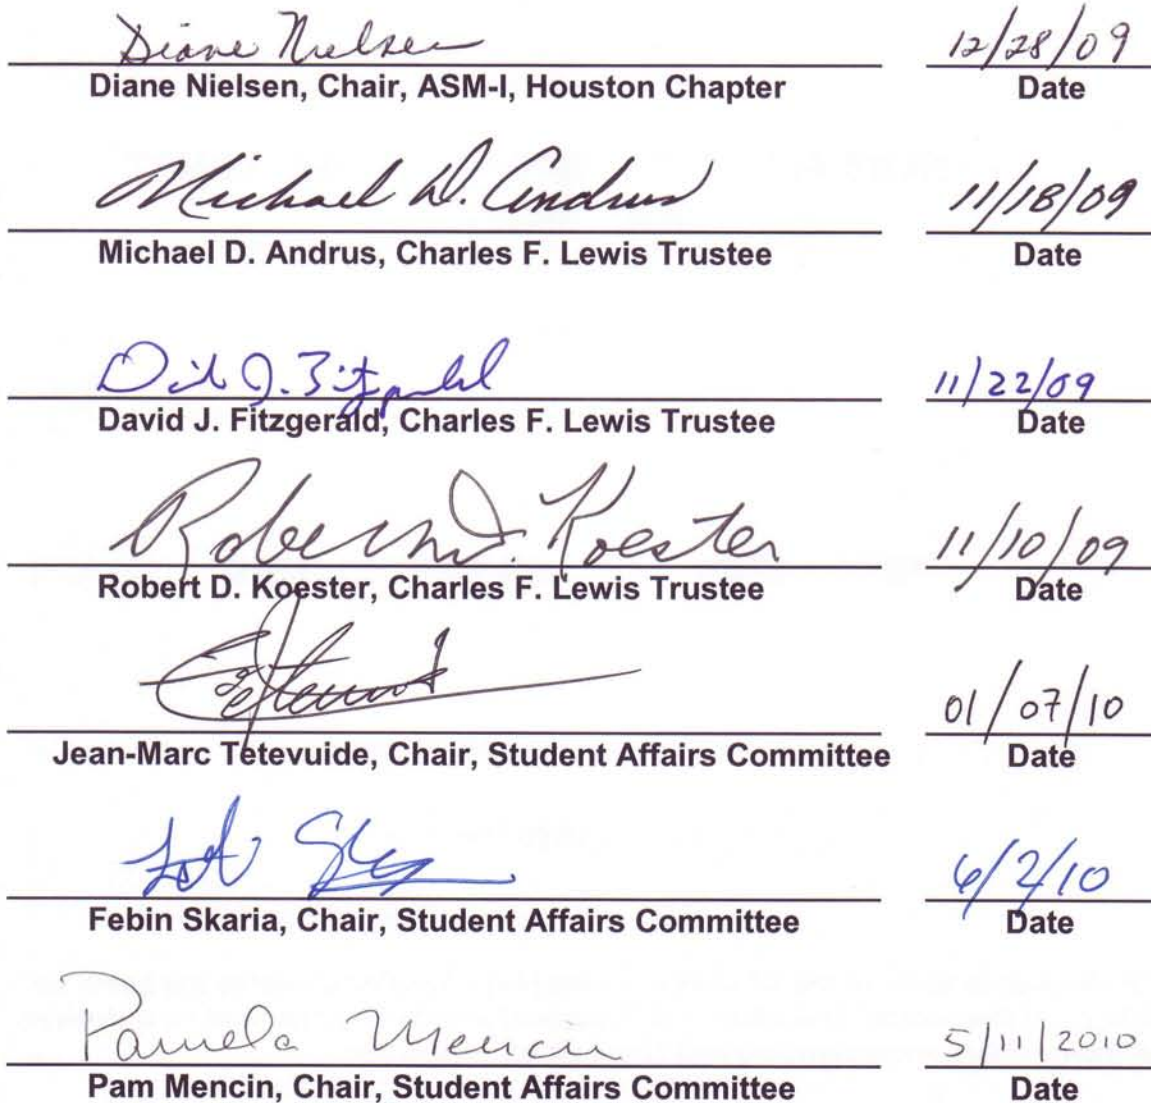 Diane Nielsen 12/28/09
Diane Nielsen, Chair, ASM-I, Houston Chapter Date
Michael D. Andrus 11/18/09
Michael D. Andrus, Charles F. Lewis Trustee Date
David J. Fitzgerald 11/22/09
David J. Fitzgerald, Charles F. Lewis Trustee Date
Robert D. Koester 11/10/09
Robert D. Koester, Charles F. Lewis Trustee Date
01/07/10
Jean-Marc Tetevuide, Chair, Student Affairs Committee Date
6/2/10
Febin Skaria, Chair, Student Affairs Committee Date
Pamela Mencin 5/11/2010
Pam Mencin, Chair, Student Affairs Committee Date